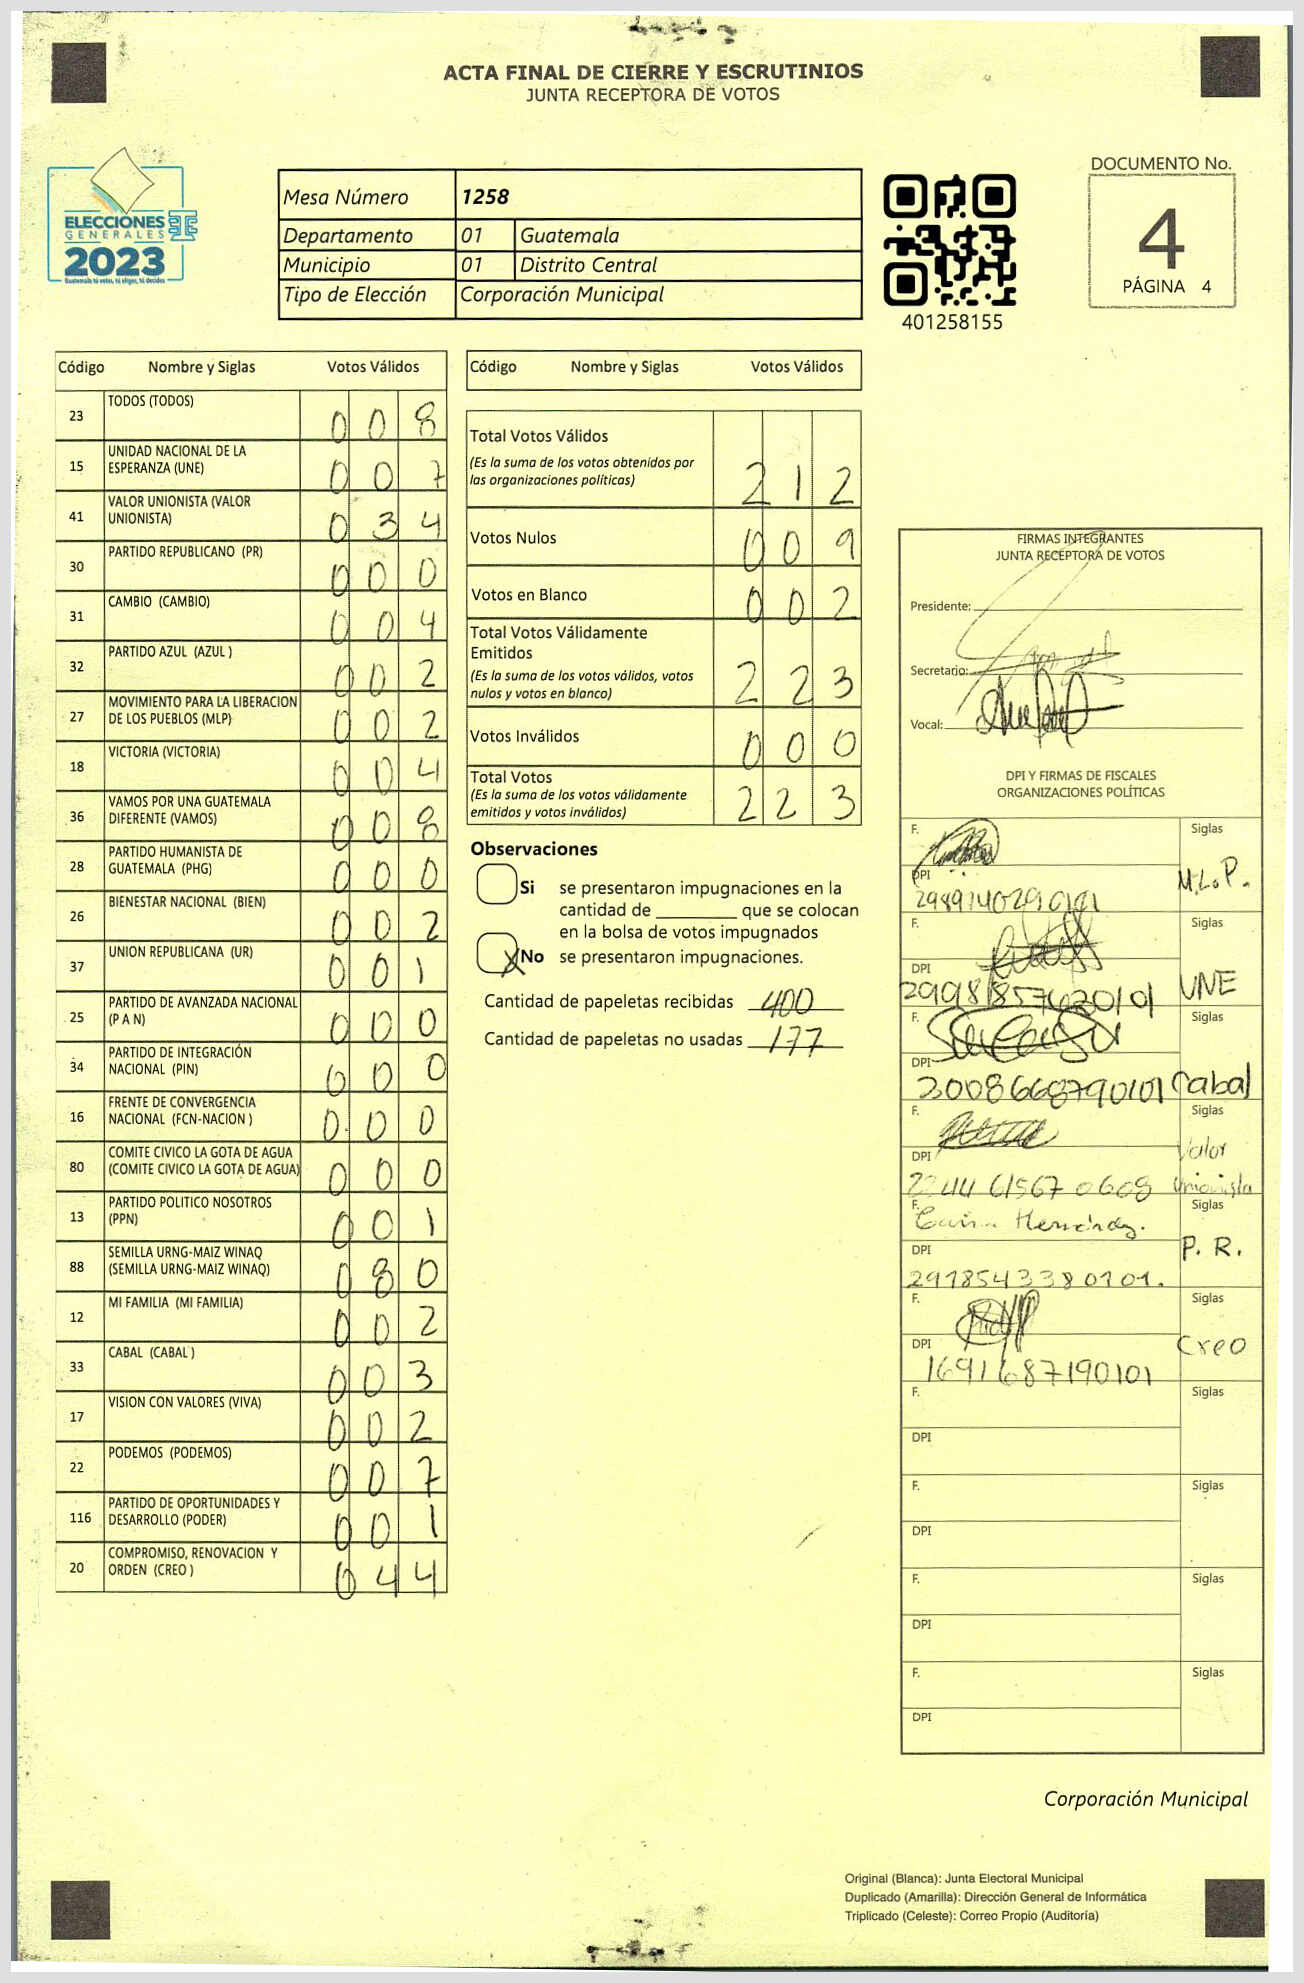 ACTA FINAL DE CIERRE Y ESCRUTINIOS
JUNTA RECEPTORA DE VOTOS
ELECCIONES
GENERALES
2023
Guatemala tú votas, tú eliges, tú decides
Mesa Número 1258
Departamento 01 Guatemala
Municipio 01 Distrito Central
Tipo de Elección Corporación Municipal
401258155
DOCUMENTO No.
4
PÁGINA 4
Código Nombre y Siglas Votos Válidos
23 TODOS (TODOS) 0 0 8
15 UNIDAD NACIONAL DE LA ESPERANZA (UNE) 0 0 7
41 VALOR UNIONISTA (VALOR UNIONISTA) 0 3 4
30 PARTIDO REPUBLICANO (PR) 0 0 0
31 CAMBIO (CAMBIO) 0 0 4
32 PARTIDO AZUL (AZUL ) 0 0 2
27 MOVIMIENTO PARA LA LIBERACION DE LOS PUEBLOS (MLP) 0 0 2
18 VICTORIA (VICTORIA) 0 0 4
36 VAMOS POR UNA GUATEMALA DIFERENTE (VAMOS) 0 0 8
28 PARTIDO HUMANISTA DE GUATEMALA (PHG) 0 0 0
26 BIENESTAR NACIONAL (BIEN) 0 0 2
37 UNION REPUBLICANA (UR) 0 0 1
25 PARTIDO DE AVANZADA NACIONAL (P A N) 0 0 0
34 PARTIDO DE INTEGRACIÓN NACIONAL (PIN) 0 0 0
16 FRENTE DE CONVERGENCIA NACIONAL (FCN-NACION ) 0 0 0
80 COMITE CIVICO LA GOTA DE AGUA (COMITE CIVICO LA GOTA DE AGUA) 0 0 0
13 PARTIDO POLITICO NOSOTROS (PPN) 0 0 1
88 SEMILLA URNG-MAIZ WINAQ (SEMILLA URNG-MAIZ WINAQ) 0 8 0
12 MI FAMILIA (MI FAMILIA) 0 0 2
33 CABAL (CABAL ) 0 0 3
17 VISION CON VALORES (VIVA) 0 0 2
22 PODEMOS (PODEMOS) 0 0 7
116 PARTIDO DE OPORTUNIDADES Y DESARROLLO (PODER) 0 0 1
20 COMPROMISO, RENOVACION Y ORDEN (CREO ) 0 4 4
Código Nombre y Siglas Votos Válidos
Total Votos Válidos
(Es la suma de los votos obtenidos por
las organizaciones políticas) 2 1 2
Votos Nulos 0 0 9
Votos en Blanco 0 0 2
Total Votos Válidamente
Emitidos
(Es la suma de los votos válidos, votos
nulos y votos en blanco) 2 2 3
Votos Inválidos 0 0 0
Total Votos
(Es la suma de los votos válidamente
emitidos y votos inválidos) 2 2 3
Observaciones
Si se presentaron impugnaciones en la
cantidad de ________ que se colocan
en la bolsa de votos impugnados
X No se presentaron impugnaciones.
Cantidad de papeletas recibidas 400
Cantidad de papeletas no usadas 177
FIRMAS INTEGRANTES
JUNTA RECEPTORA DE VOTOS
Presidente:
Secretario:
Vocal:
DPI Y FIRMAS DE FISCALES
ORGANIZACIONES POLÍTICAS
F. Siglas
DPI M.L.P.
F. Siglas
DPI UNE
F. Siglas
DPI Cabal
3008668790101
F. Siglas
DPI Valor
Unionista
F. Hernández. Siglas
DPI P. R.
2978543380101.
F. Siglas
DPI Creo
1691687190101
F. Siglas
DPI
F. Siglas
DPI
F. Siglas
DPI
F. Siglas
DPI
Corporación Municipal
Original (Blanca): Junta Electoral Municipal
Duplicado (Amarilla): Dirección General de Informática
Triplicado (Celeste): Correo Propio (Auditoría)